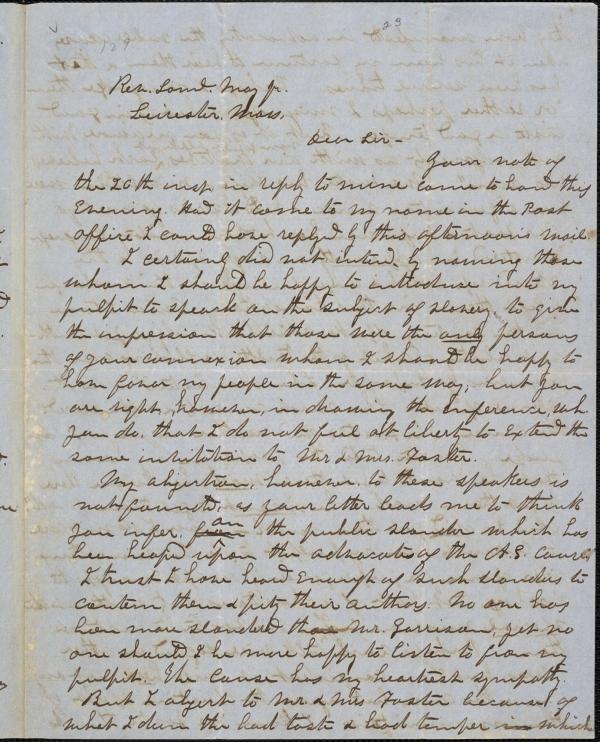 23
129
Rev. Saml. May Jr.
Leicester, Mass.
Dear Sir—
Your note of
the 20th inst. in reply to mine came to hand this
Evening. Had it come to my name in the Post
office I could have replyd by this afternoon's mail.
I certainly did not intend, by naming those
whom I should be happy to introduce into my
pulpit to speak on the subject of slavery to give
the impression that those were the only persons
of your connexion whom I should be happy to
have favor my people in the same way; but you
are right, however, in drawing the inference, wh.
you do, that I do not feel at liberty to extend the
same invitation to Mr & Mrs. Foster.
My objection, however, to these speakers is
not found, as your letter leads me to think
you infer, on the public slander which has
been heap'd upon the advocates of the A.S. cause.
I trust I have heard enough of such slanders to
contemn them & pity their authors. No one has
been more slandered than Mr. Garrison, yet no
one should I be more happy to listen to from my
pulpit. The cause has my heartiest sympathy.
But I object to Mr & Mrs Foster because of
what I deem the bad taste & bad temper in which